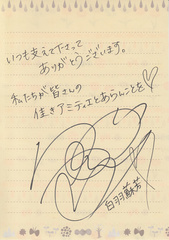 いつも支えて下さって
ありがとうございます。
私たちが皆さんの
佳きアミティエとあらんことを♡
白羽蘇芳